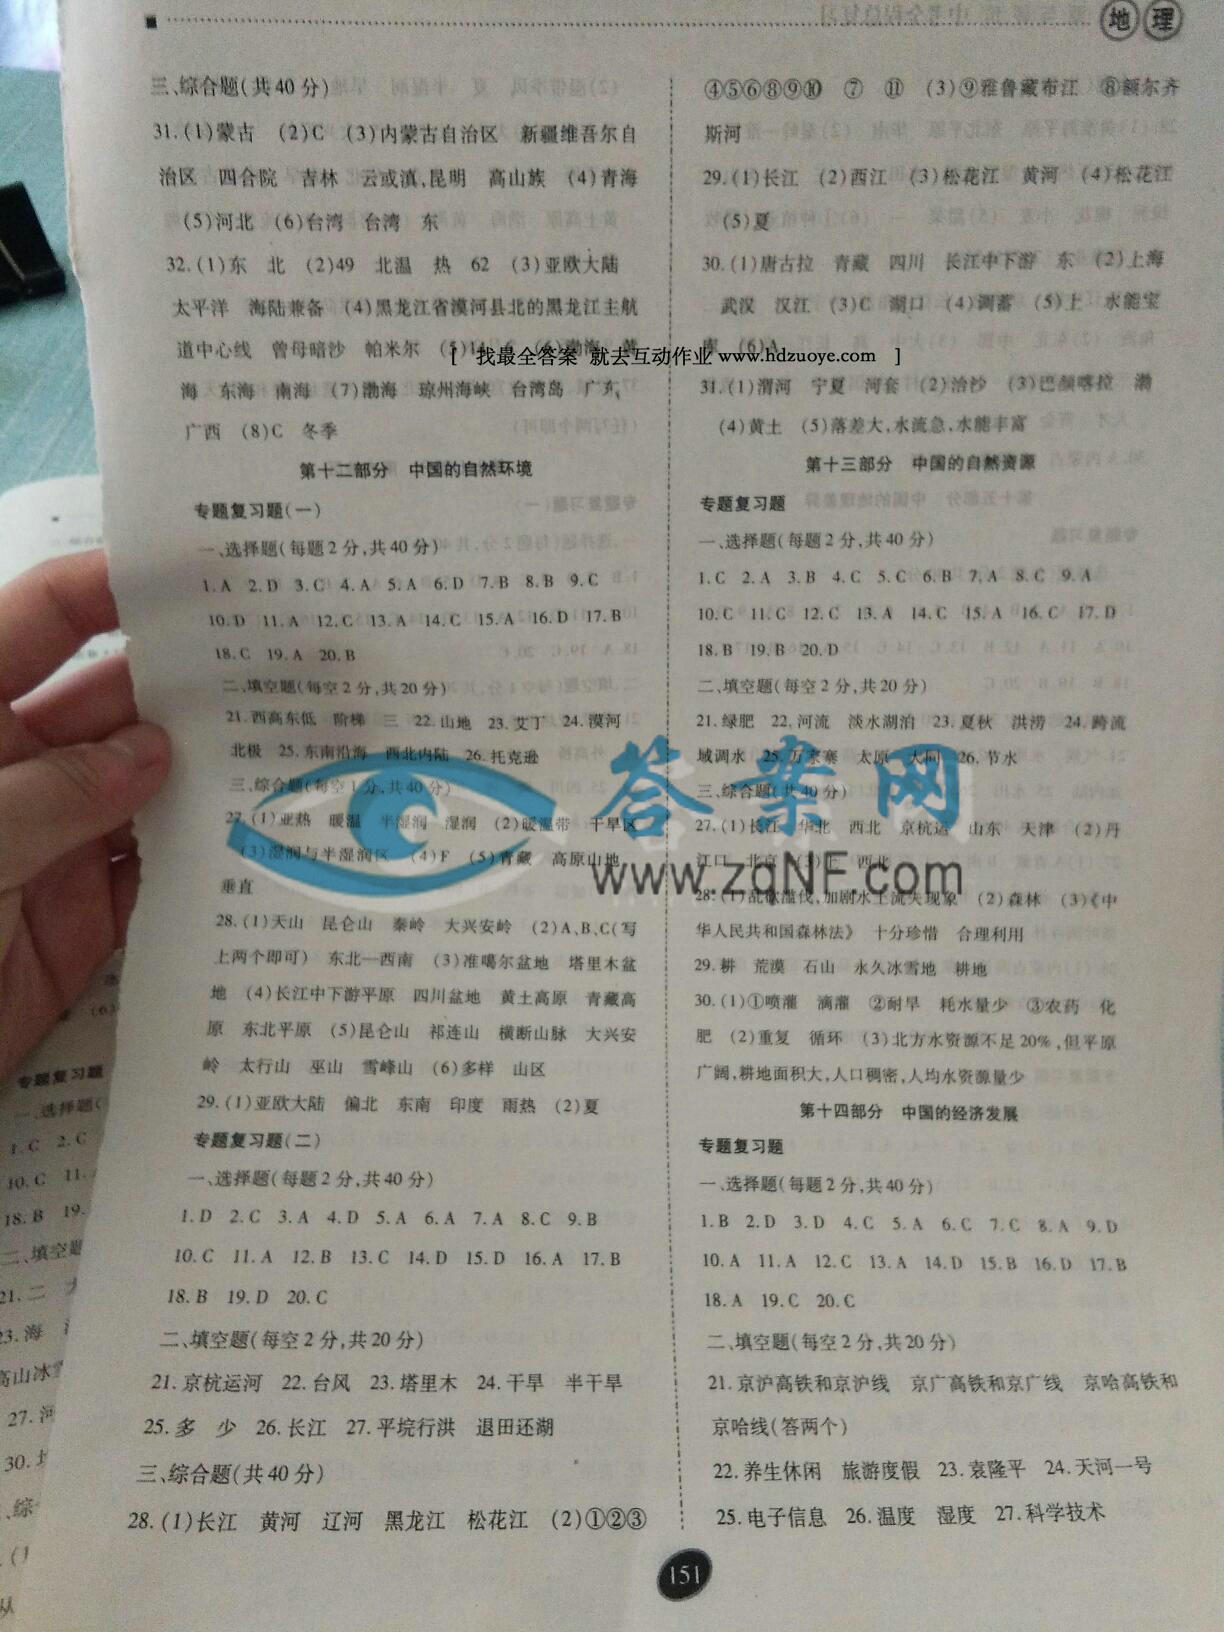 地理
三、综合题(共40分)
31.(1)蒙古 (2)C (3)内蒙古自治区 新疆维吾尔自
治区 四合院 吉林 云或滇,昆明 高山族 (4)青海
(5)河北 (6)台湾 台湾 东
32.(1)东 北 (2)49 北温 热 62 (3)亚欧大陆
太平洋 海陆兼备 (4)黑龙江省漠河县北的黑龙江主航
道中心线 曾母暗沙 帕米尔 (5)14
海 东海 南海 (7)渤海 琼州海峡 台湾岛 广东
广西 (8)C 冬季
第十二部分 中国的自然环境
专题复习题(一)
一、选择题(每题2分,共40分)
1.A 2.D 3.C 4.A 5.A 6.D 7.B 8.B 9.C
10.D 11.A 12.C 13.A 14.C 15.A 16.D 17.B
18.C 19.A 20.B
二、填空题(每空2分,共20分)
21.西高东低 阶梯 三 22.山地 23.艾丁 24.漠河
北极 25.东南沿海 西北内陆 26.托克逊
三、综合题(每空1分,共40分)
27.(1)亚热 暖温 半湿润 湿润 (2)暖温带 干旱区
(3)湿润与半湿润区 (4)F (5)青藏 高原山地
垂直
28.(1)天山 昆仑山 秦岭 大兴安岭 (2)A、B、C(写
上两个即可) 东北—西南 (3)准噶尔盆地 塔里木盆
地 (4)长江中下游平原 四川盆地 黄土高原 青藏高
原 东北平原 (5)昆仑山 祁连山 横断山脉 大兴安
岭 太行山 巫山 雪峰山 (6)多样 山区
29.(1)亚欧大陆 偏北 东南 印度 雨热 (2)夏
专题复习题(二)
一、选择题(每题2分,共40分)
1.D 2.C 3.A 4.D 5.A 6.A 7.A 8.C 9.B
10.C 11.A 12.B 13.C 14.D 15.D 16.A 17.B
18.B 19.D 20.C
二、填空题(每空2分,共20分)
21.京杭运河 22.台风 23.塔里木 24.干旱 半干旱
25.多 少 26.长江 27.平垸行洪 退田还湖
三、综合题(共40分)
28.(1)长江 黄河 辽河 黑龙江 松花江 (2)①②③
④⑤⑥⑧⑨⑩ ⑦ ⑪ (3)⑨雅鲁藏布江 ⑧额尔齐
斯河
29.(1)长江 (2)西江 (3)松花江 黄河 (4)松花江
(5)夏
30.(1)唐古拉 青藏 四川 长江中下游 东 (2)上海
武汉 汉江 (3)C 湖口 (4)调蓄 (5)上 水能宝
库 (6)A
[ 找最全答案 就去互动作业 www.hdzuoye.com ]
31.(1)渭河 宁夏 河套 (2)治沙 (3)巴颜喀拉 渤
(4)黄土 (5)落差大,水流急,水能丰富
第十三部分 中国的自然资源
专题复习题
一、选择题(每题2分,共40分)
1.C 2.A 3.B 4.C 5.C 6.B 7.A 8.C 9.A
10.C 11.C 12.C 13.A 14.C 15.A 16.C 17.D
18.B 19.B 20.D
二、填空题(每空2分,共20分)
21.绿肥 22.河流 淡水湖泊 23.夏秋 洪涝 24.跨流
域调水 25.万家寨 太原 大同 26.节水
三、综合题(共40分)
27.(1)长江 华北 西北 京杭运 山东 天津 (2)丹
江口 北京 (3)上 西北
答案网
www.zqNF.com
28.(1)乱砍滥伐,加剧水土流失现象 (2)森林 (3)《中
华人民共和国森林法》 十分珍惜 合理利用
29.耕 荒漠 石山 永久冰雪地 耕地
30.(1)①喷灌 滴灌 ②耐旱 耗水量少 ③农药 化
肥 (2)重复 循环 (3)北方水资源不足20%,但平原
广阔,耕地面积大,人口稠密,人均水资源量少
第十四部分 中国的经济发展
专题复习题
一、选择题(每题2分,共40分)
1.B 2.D 3.D 4.C 5.A 6.C 7.C 8.A 9.D
10.A 11.A 12.C 13.A 14.D 15.B 16.D 17.B
18.A 19.C 20.C
二、填空题(每空2分,共20分)
21.京沪高铁和京沪线 京广高铁和京广线 京哈高铁和
京哈线(答两个)
22.养生休闲 旅游度假 23.袁隆平 24.天河一号
25.电子信息 26.温度 湿度 27.科学技术
151
专题复习题
一、选择题(
1.C 2.C
10.C 11.
18.B 19.
二、填空题
21.二
23.海
高山冰
27.河
30.
综
从